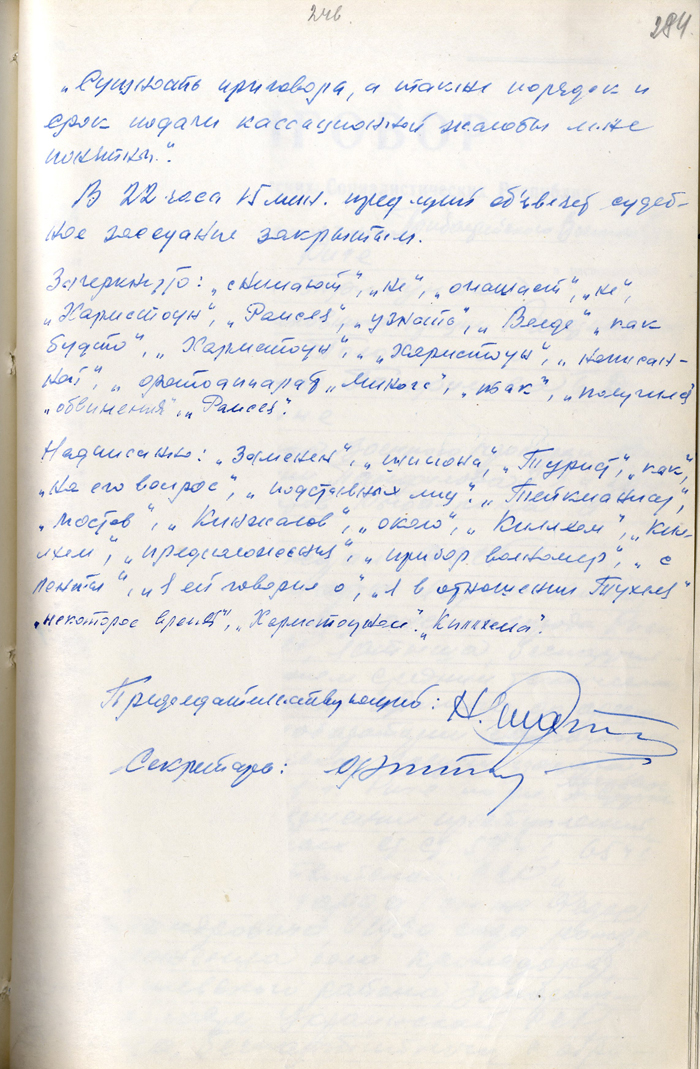 246.
284.
„Сущность приговора, а также порядок и
срок подачи кассационной жалобы мне
понятны“.
В 22 часа 15 мин. пред-щий объявляет судеб-
ное заседание закрытым.
Зачеркнуто: „снимают“, „не“, „не“,
„Хармстоун“, „Рамсея“, „узнать“, „Везде“, „как
будто“, „Хармстоун“, „Хармстоун“, „написан-
ной“, „фотоаппарат „Минокс“, „так“, „получил“
„обвинения“, „Рамсея“.
Надписано: „Заменен“, „шпиона“, „Турист“, „как“,
„на его вопрос“, „подставных лиц“.
„мостов“, „Кинжалов“, „около“, „Киллхем“, „Кил-
лхем“, „предположения“, „прибор волномер“, „с
ленты“, „я ей говорил о“, „я в отношении
„некоторое время“, „Хармстоуном“. „Киллхема“.
Председательствующий: Н.
Секретарь: